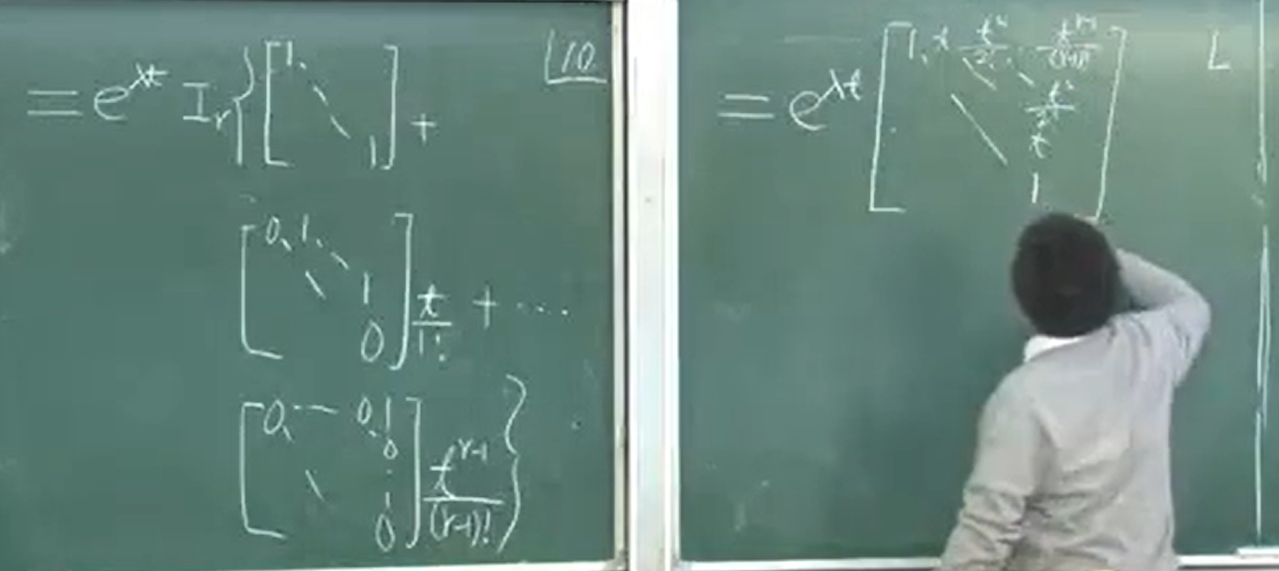 = e^{λt} I_r { [ 1 ⋱ 1 ] +
[ 0 1 ⋱ 1 0 ] t/1! + ⋯
[ 0 — 0 1 0 ⋱ 1 0 ] t^{r-1}/(r-1)! }
10
= e^{λt} [ 1 t t²/2! ⋯ t^{r-1}/(r-1)!
t²/2
t
1 ]